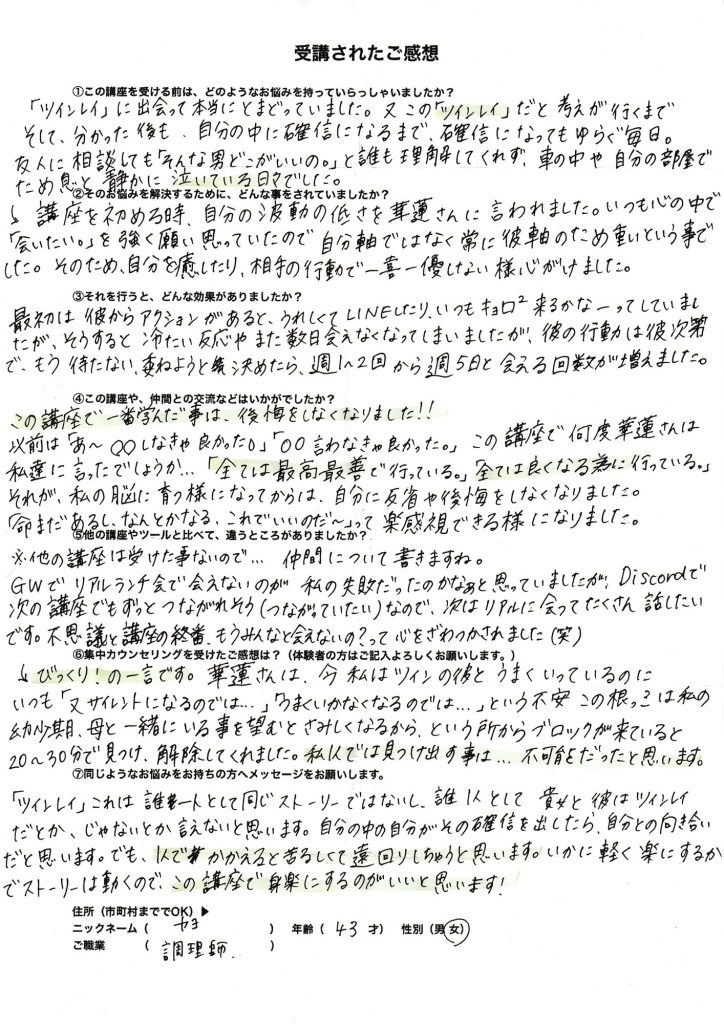 受講されたご感想
①この講座を受ける前は、どのようなお悩みを持っていらっしゃいましたか？
「ツインレイ」に出会って本当にとまどっていました。又この「ツインレイ」だと考えが行くまで
そして、分かった後も、自分の中に確信になるまで、確信になってもゆらぐ毎日。
友人に相談しても「そんな男どこがいいの。」と誰も理解してくれず、車の中や自分の部屋で
ため息と静かに泣いている日々でした。
②そのお悩みを解決するために、どんな事をされていましたか？
↓講座を初める時、自分の波動の低さを華蓮さんに言われました。いつも心の中で
「会いたい。」を強く願い思っていたので自分軸ではなく常に彼軸のため重いという事で
した。そのため、自分を癒したり、相手の行動で一喜一優しない様心がけました。
③それを行うと、どんな効果がありましたか？
最初は彼からアクションがあると、うれしくてLINEしたり、いつもキョロ²来るかなーってしていまし
たが、そうすると冷たい反応やまた数日会えなくなってしまいましたが、彼の行動は彼次第
で、もう待たない、委ねようと決めたら、週1〜2回から週5日と会える回数が増えました。
④この講座や、仲間との交流などはいかがでしたか？
この講座で一番学んだ事は、後悔をしなくなりました!!
以前は「あ〜〇〇しなきゃ良かった。」「〇〇言わなきゃ良かった。」この講座で何度華蓮さんは
私達に言ったでしょうか…「全ては最高最善で行っている。」「全ては良くなる為に行っている。」
それが、私の脳に育つ様になってからは、自分に反省や後悔をしなくなりました。
「命まだあるし、なんとかなる、これでいいのだ〜」って楽感視できる様になりました。
⑤他の講座やツールと比べて、違うところがありましたか？
※他の講座は受けた事ないので… 仲間について書きますね。
GWでリアルランチ会で会えないのが私の失敗だったのかなぁと思っていましたが、Discordで
次の講座でもずっとつながれそう(つながっていたい)なので、次はリアルに会ってたくさん話したい
です。不思議と講座の終番、もうみんなと会えないの？って心をざわつかされました(笑)
⑥集中カウンセリングを受けたご感想は？（体験者の方はご記入よろしくお願いします。）
↓びっくり！の一言です。華蓮さんは、今私はツインの彼とうまくいっているのに
いつも「又サイレントになるのでは…」「うまくいかなくなるのでは…」という不安 この根っこは私の
幼少期、母と一緒にいる事を望むとさみしくなるから、という所からブロックが来ていると
20〜30分で見つけ、解除してくれました。私1人では見つけ出す事は…不可能だったと思います。
⑦同じようなお悩みをお持ちの方へメッセージをお願いします。
「ツインレイ」これは誰一人として同じストーリーではないし、誰1人として貴女と彼はツインレイ
だとか、じゃないとか言えないと思います。自分の中の自分がその確信を出したら、自分との向き合い
だと思います。でも、1人でかかえると苦るしくて遠回りしちゃうと思います。いかに軽く楽にするか
でストーリーは動くので、この講座で身楽にするのがいいと思います！
住所（市町村まででOK）▶
ニックネーム（ カヨ ） 年齢（ 43 才） 性別（男 女）
ご職業 （ 調理師. ）